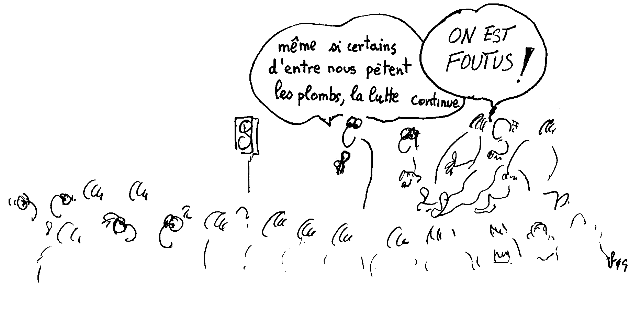 même si certains
d'entre nous pètent
les plombs, la lutte continue
ON EST
FOUTUS !